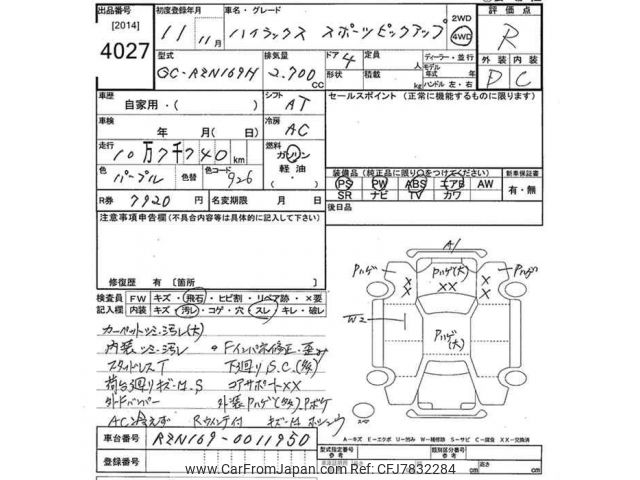 出品番号 [2014] 4027
初度登録年月 11年 11月
車名・グレード ハイラックス スポーツピックアップ
2WD
4WD
評価点 R
外装 内装
D C
型式 GC-RZN169H
排気量 2.700 CC
ドア 4
形状
定員 人
積載 kg
ディーラー・並行
モデル年式 年式
ハンドル 左・右
車歴 自家用・( )
シフト AT
セールスポイント (正常に機能するものに限ります)
車検 年 月( 日)
冷房 AC
走行 10万7千740 km
燃料 ガソリン
軽油
・
色 パープル
色替
色コード 926
装備品 (純正品に限り○をつけてください)
PS PW ABS エアB AW
SR ナビ TV カワ
新車保証書
有・無
R券 7920 円
名変期限 月 日
後日品
注意事項申告欄(不具合内容等は具体的に記入して下さい)
修復歴 有 [箇所 ]
検査員記入欄
FW キズ・飛石・ヒビ割・リペア跡・×要
内装 キズ・汚レ・コゲ・穴・スレ・キレ・破レ
カーペットシミ・汚レ(大)
内装シミ・汚レ
スタッドレスT 下廻りS.C.(多)
荷台廻りキズ・U.S コアサポートXX
外Fバンパー 外装Pハゲ(多)Pボケ
AC冷えず
A1
Pハゲ
Pハゲ(大)
XX
Pハゲ
W2
Pハゲ(大)
スペア
車台番号 RZN169-0011950
登録番号
A－キズ E－エクボ U－凹み W－補修跡 S－サビ C－腐食 XX－交換済
型式指定番号
類別区分番号
長さ cm
幅 cm
高さ cm
www.CarFromJapan.com - Ref:CFJ7832284